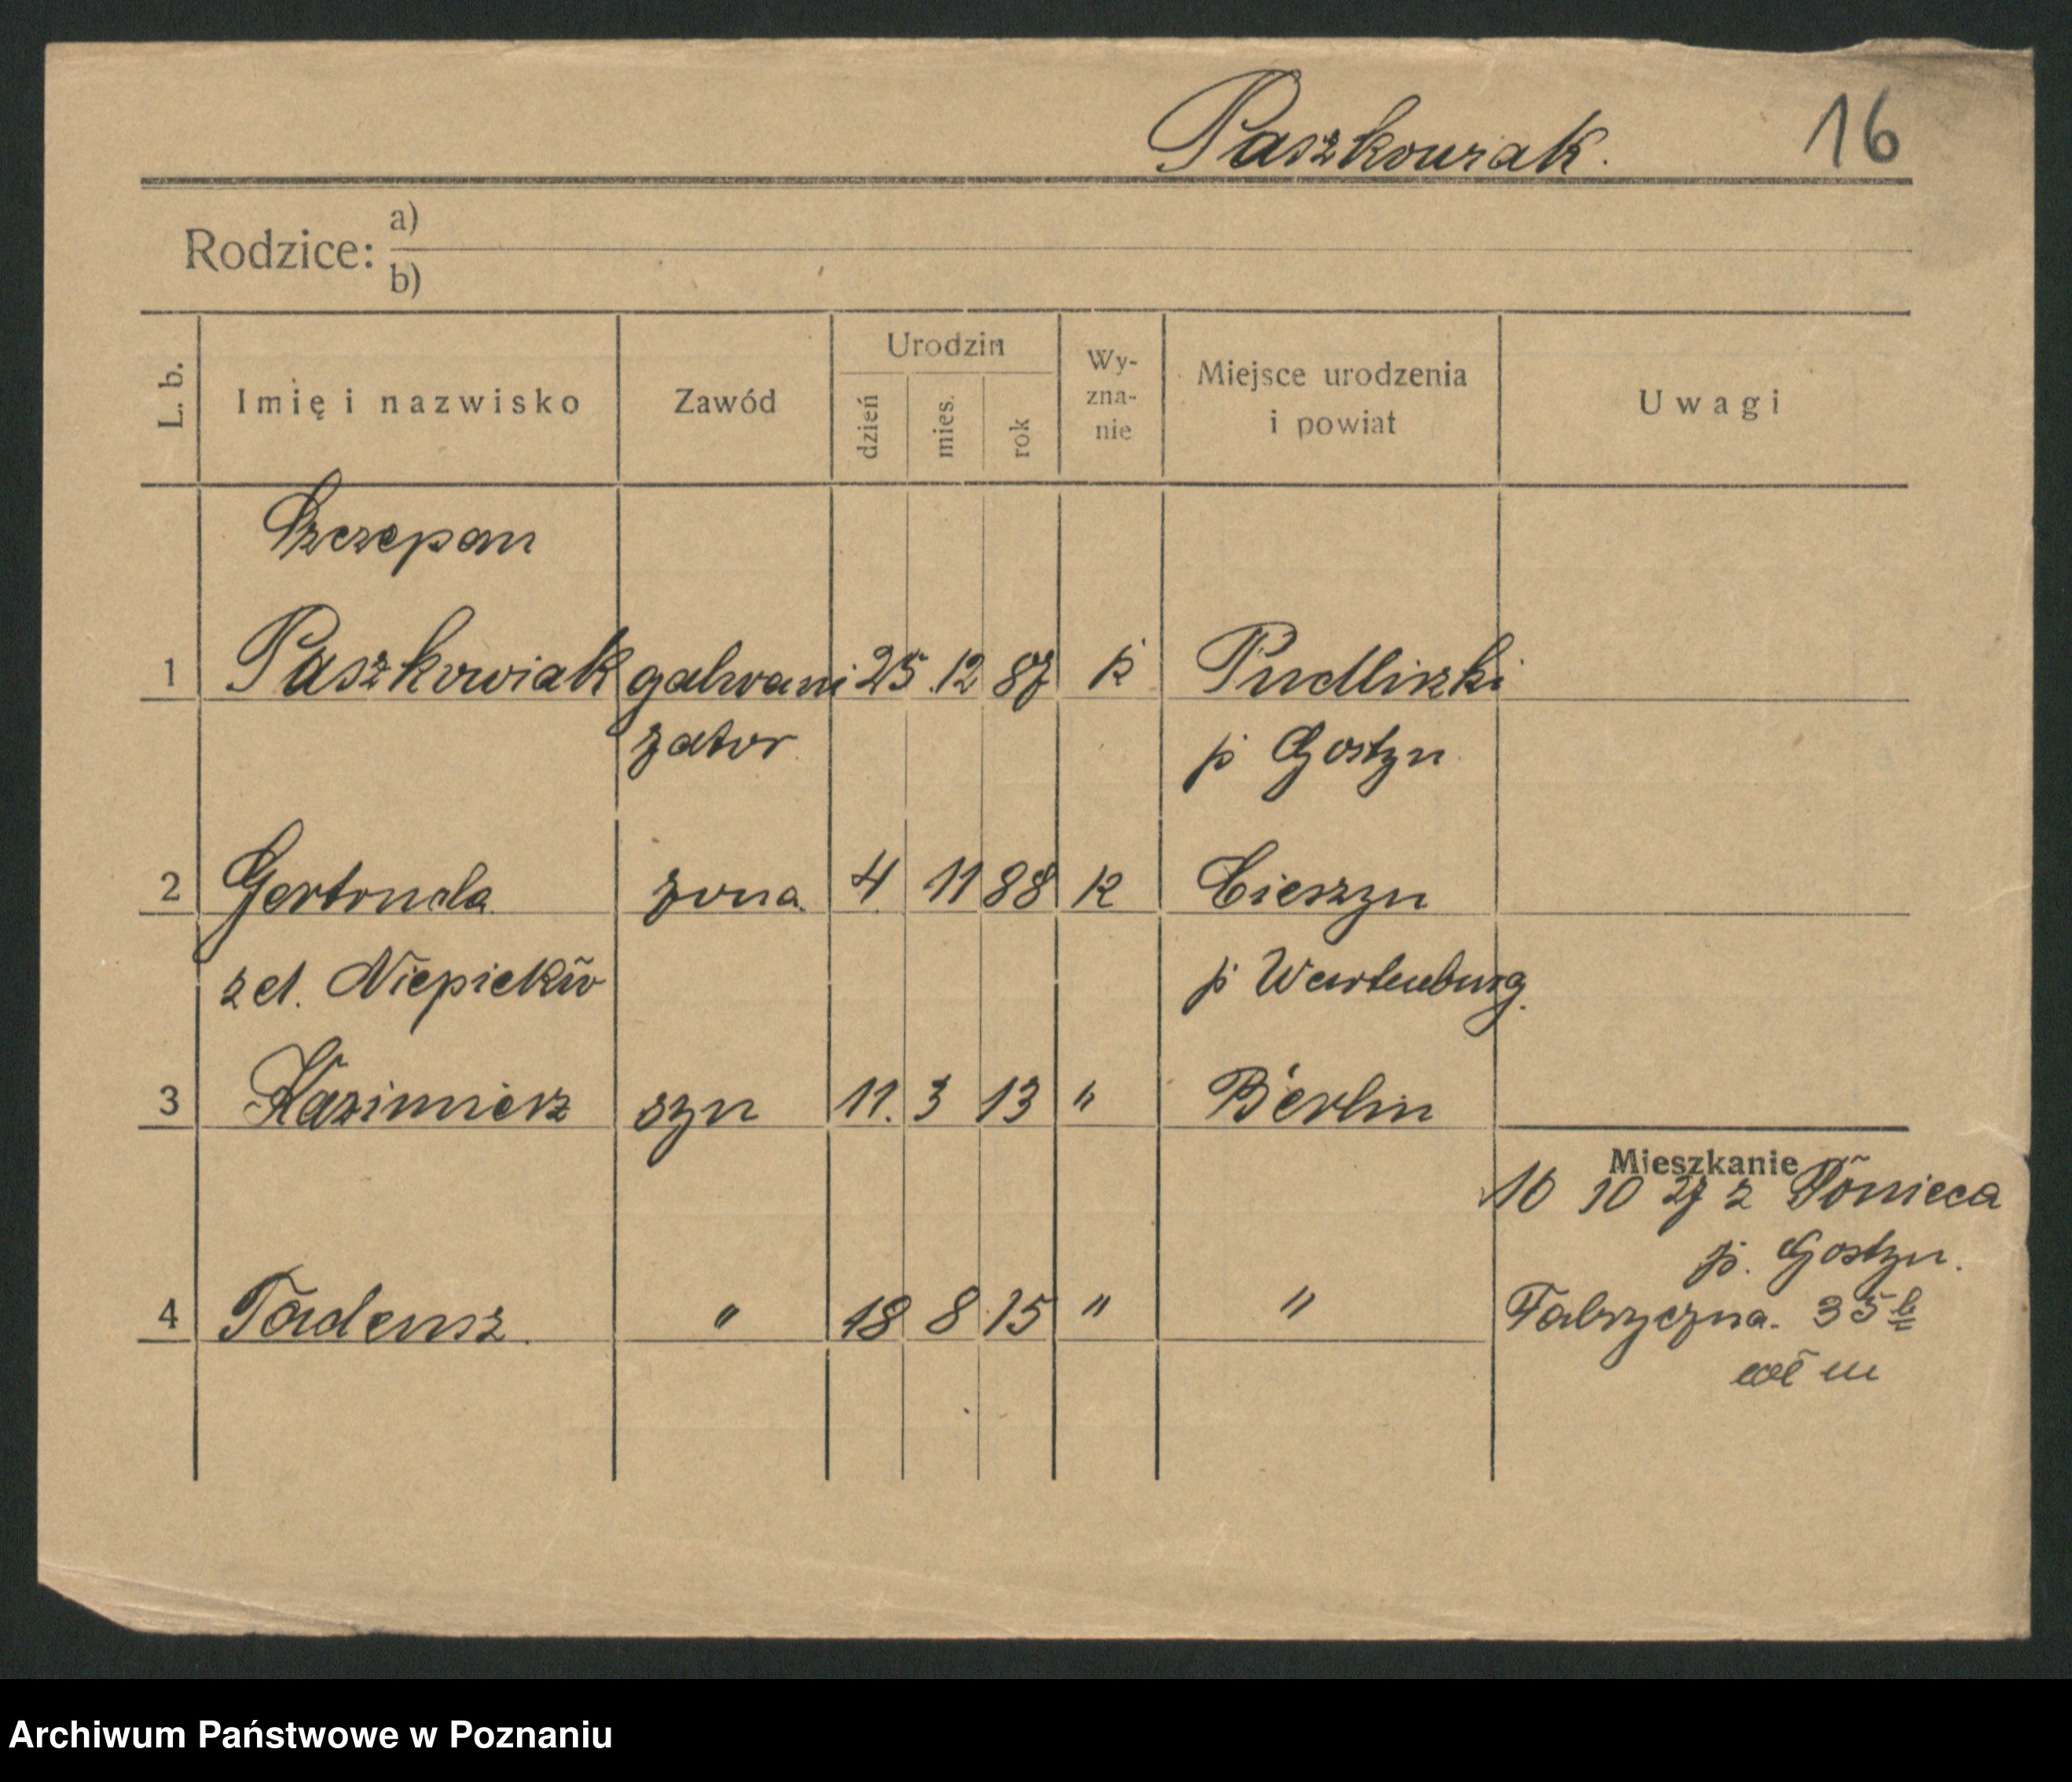 Paszkowiak. 16
Rodzice: a)
b)
L. b. Imię i nazwisko Zawód Urodzin dzień mies. rok Wy-zna-nie Miejsce urodzenia i powiat Uwagi
Szczepan
1 Paszkowiak galwani 25 12 87 k Pudliszki
zator p Gostyn
2 Gertruda żona 4 11 88 k Cieszyn
z d. Niepieków p Wartenburg.
3 Kazimierz syn 11. 3 13 " Berlin
Mieszkanie
16 10 27 z Ponieca
p. Gostyn.
4 Tadeusz " 18 8 15 " " Fabryczna. 35 b
Archiwum Państwowe w Poznaniu